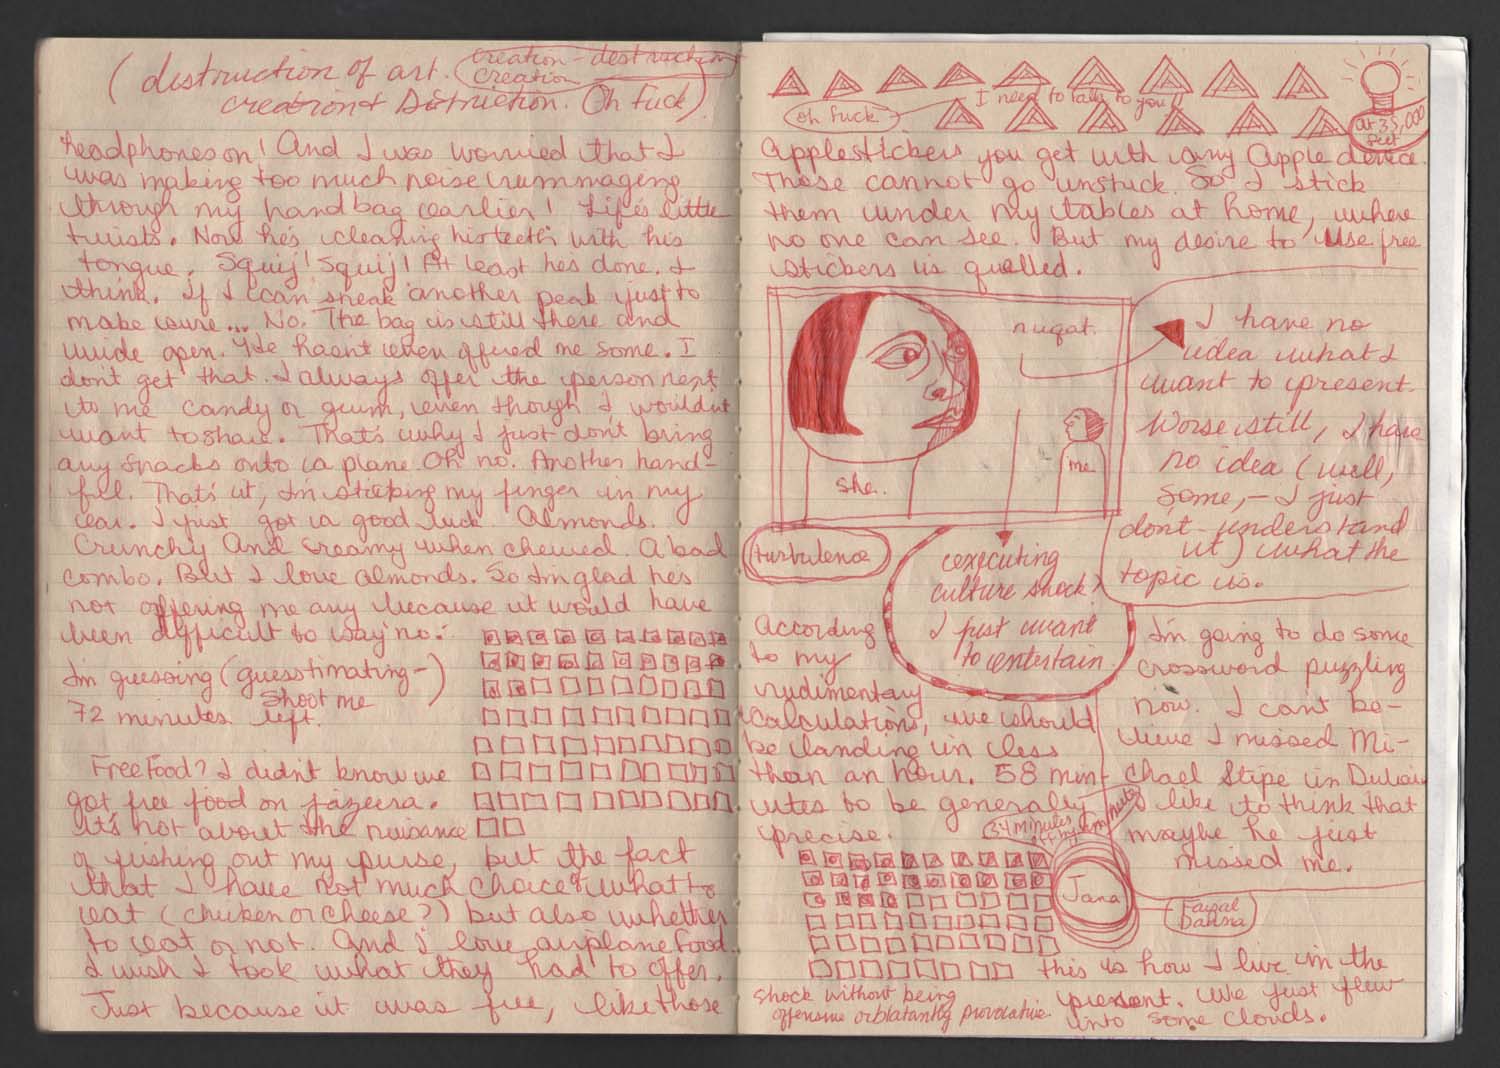 (destruction of art. creation - destruction
creation
creation & Distriction. Oh fuck)
headphones on! And I was worried that I
was making too much noise rummaging
through my handbag earlier! Life's little
twists. Now he's cleaning his teeth with his
tongue. Squij! Squij! At least he's done. I
think. If I can sneak another peak just to
make sure... No. The bag is still there and
wide open. He hasn't even offered me some. I
don't get that. I always offer the person next
to me candy or gum, even though I wouldn't
want to share. That's why I just don't bring
any snacks onto a plane. Oh no. Another hand-
full. That's it, I'm sticking my finger in my
ear. I just got a good look. Almonds.
Crunchy and creamy when chewed. A bad
combo. But I love almonds. So I'm glad he's
not offering me any because it would have
been difficult to say no.
I'm guessing (guesstimating-)
shoot me
72 minutes left.
Free Food? I didn't know we
got free food on Jazeera.
it's not about the nuisance
of fishing out my purse, but the fact
that I have not much choice of what to
eat (chicken or cheese?) but also whether
to eat or not. And I love airplane food.
I wish I took what they had to offer.
Just because it was free, like those
oh fuck
I need to talk to you!!
at 35,000
feet
apple stickers you get with any Apple device.
Those cannot go unstuck. So I stick
them under my tables at home, where
no one can see. But my desire to use free
stickers is quelled.
nuqat.
she.
me
I have no
idea what I
want to present.
Worse still, I have
no idea (well,
some, - I just
don't understand
it) what the
topic is.
turbulence
executing
culture shock?
I just want
to entertain.
According
to my
rudimentary
calculations, we should
be landing in less
than an hour. 58 min-
utes to be generally
precise.
34 minutes
off by 4 minutes
I'm going to do some
crossword puzzling
now. I can't be-
lieve I missed Mi-
chael Stipe in Dubai
I like to think that
maybe he just
missed me.
Jana
Faisal
Danna
this is how I live in the
present. We just flew
into some clouds.
shock without being
offensive or blatantly provocative.